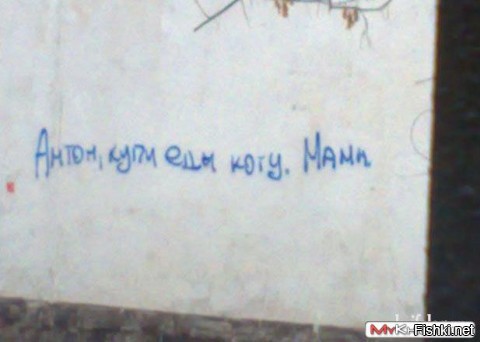 Антон, купи еды коту. Мама
Fishki.net